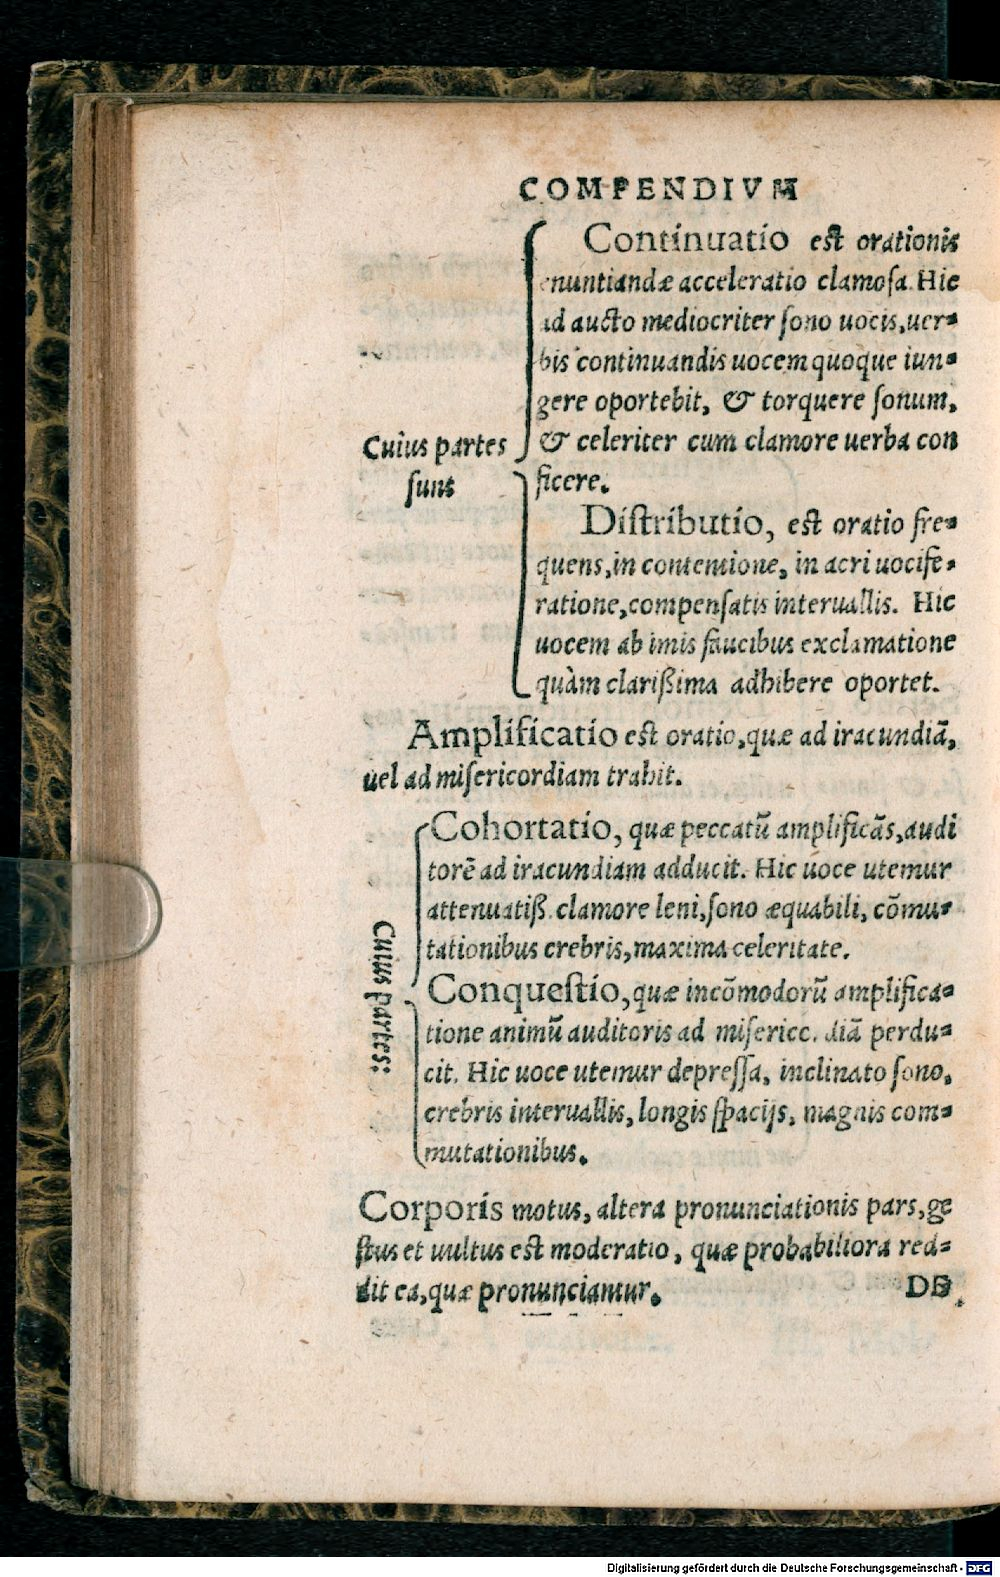 COMPENDIVM
Continuatio est orationis
enuntiandæ acceleratio clamosa. Hic
ad aucto mediocriter sono uocis, uer-
bis continuandis uocem quoque iun-
gere oportebit, & torquere sonum,
& celeriter cum clamore uerba con
ficere.
Cuius partes
sunt
Distributio, est oratio fre-
quens, in contentione, in acri uocife-
ratione, compensatis interuallis. Hic
uocem ab imis faucibus exclamatione
quàm clarißima adhibere oportet.
Amplificatio est oratio, quæ ad iracundiã,
uel ad misericordiam trahit.
Cohortatio, quæ peccatũ amplificãs, audi
torẽ ad iracundiam adducit. Hic uoce utemur
attenuatiß. clamore leni, sono æquabili, cõmu-
tationibus crebris, maxima celeritate.
Cuius partes:
Conquestio, quæ incõmodorũ amplifica-
tione animũ auditoris ad misericordiã perdu-
cit. Hic uoce utemur depressa, inclinato sono,
crebris interuallis, longis spacijs, magnis com-
mutationibus.
Corporis motus, altera pronunciationis pars, ge
stus et uultus est moderatio, quæ probabiliora red-
dit ea, quæ pronunciamur.
DE
Digitalisierung gefördert durch die Deutsche Forschungsgemeinschaft - DFG